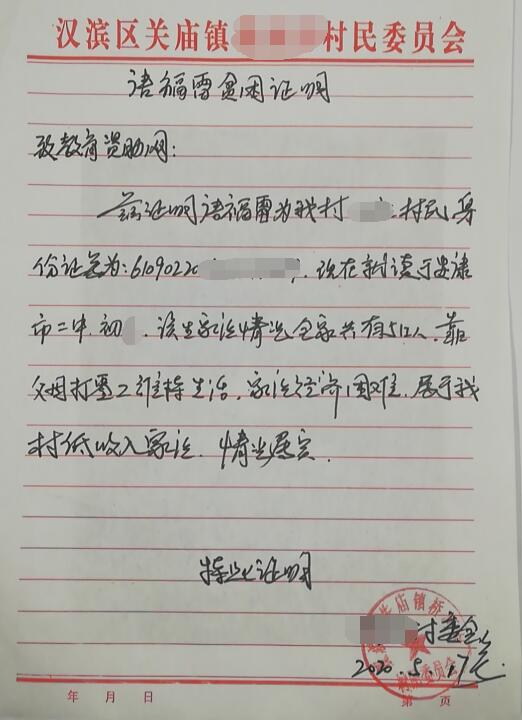 汉滨区关庙镇 村民委员会
语福雷贫困证明
致教育资助网：
兹证明语福雷为我村 村民身
份证号为：6109022 ，现在就读于安康
市二中，初 ，该生家法情况全家共有5口人，靠
父母打零工维持生活，家法经济困难，属于我
村低收入家法，情况属实。
特此证明
村委会
2020.5.17
关庙镇桥
村民委员会
年 月 日
第 页